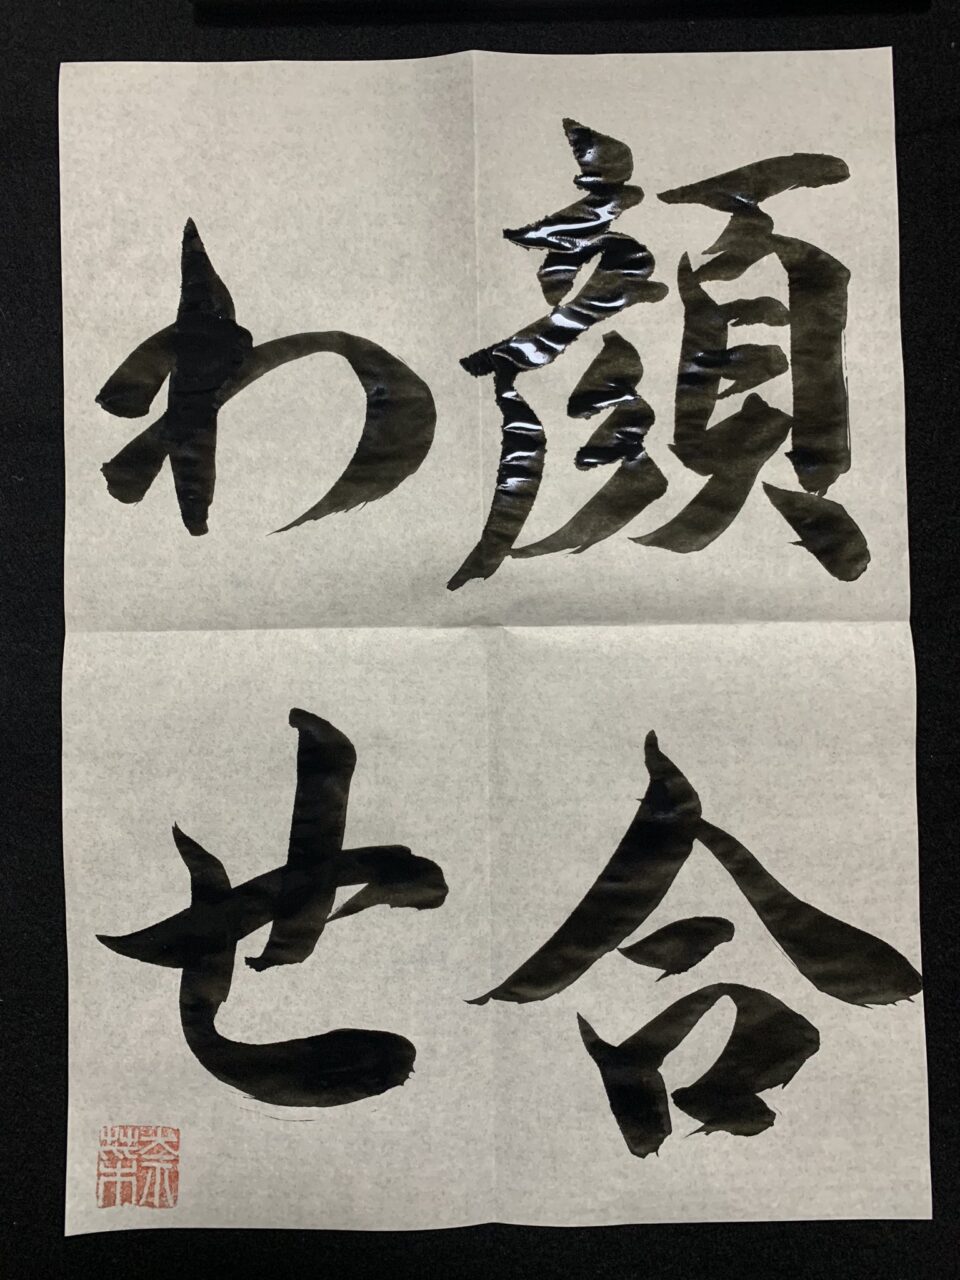 顔合
わせ